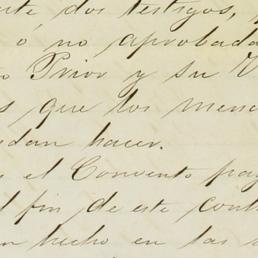 te dos testigos, y
ó no aprobada
Prior y su V
s que los menc
dan hacer.
el Convento pag
l fin de este cont
n hecho en las